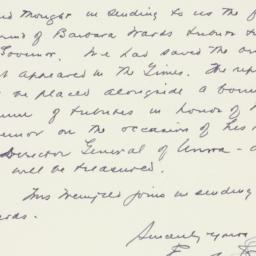 thought in sending to us the
of Barbara Wards tribute
Governor. We had saved the
appeared in the Times. The
be placed alongside a
of tributes in honor of
on the occasion of his
Director General of Unrra -
will be treasured.
joins in sending
Sincerely yours